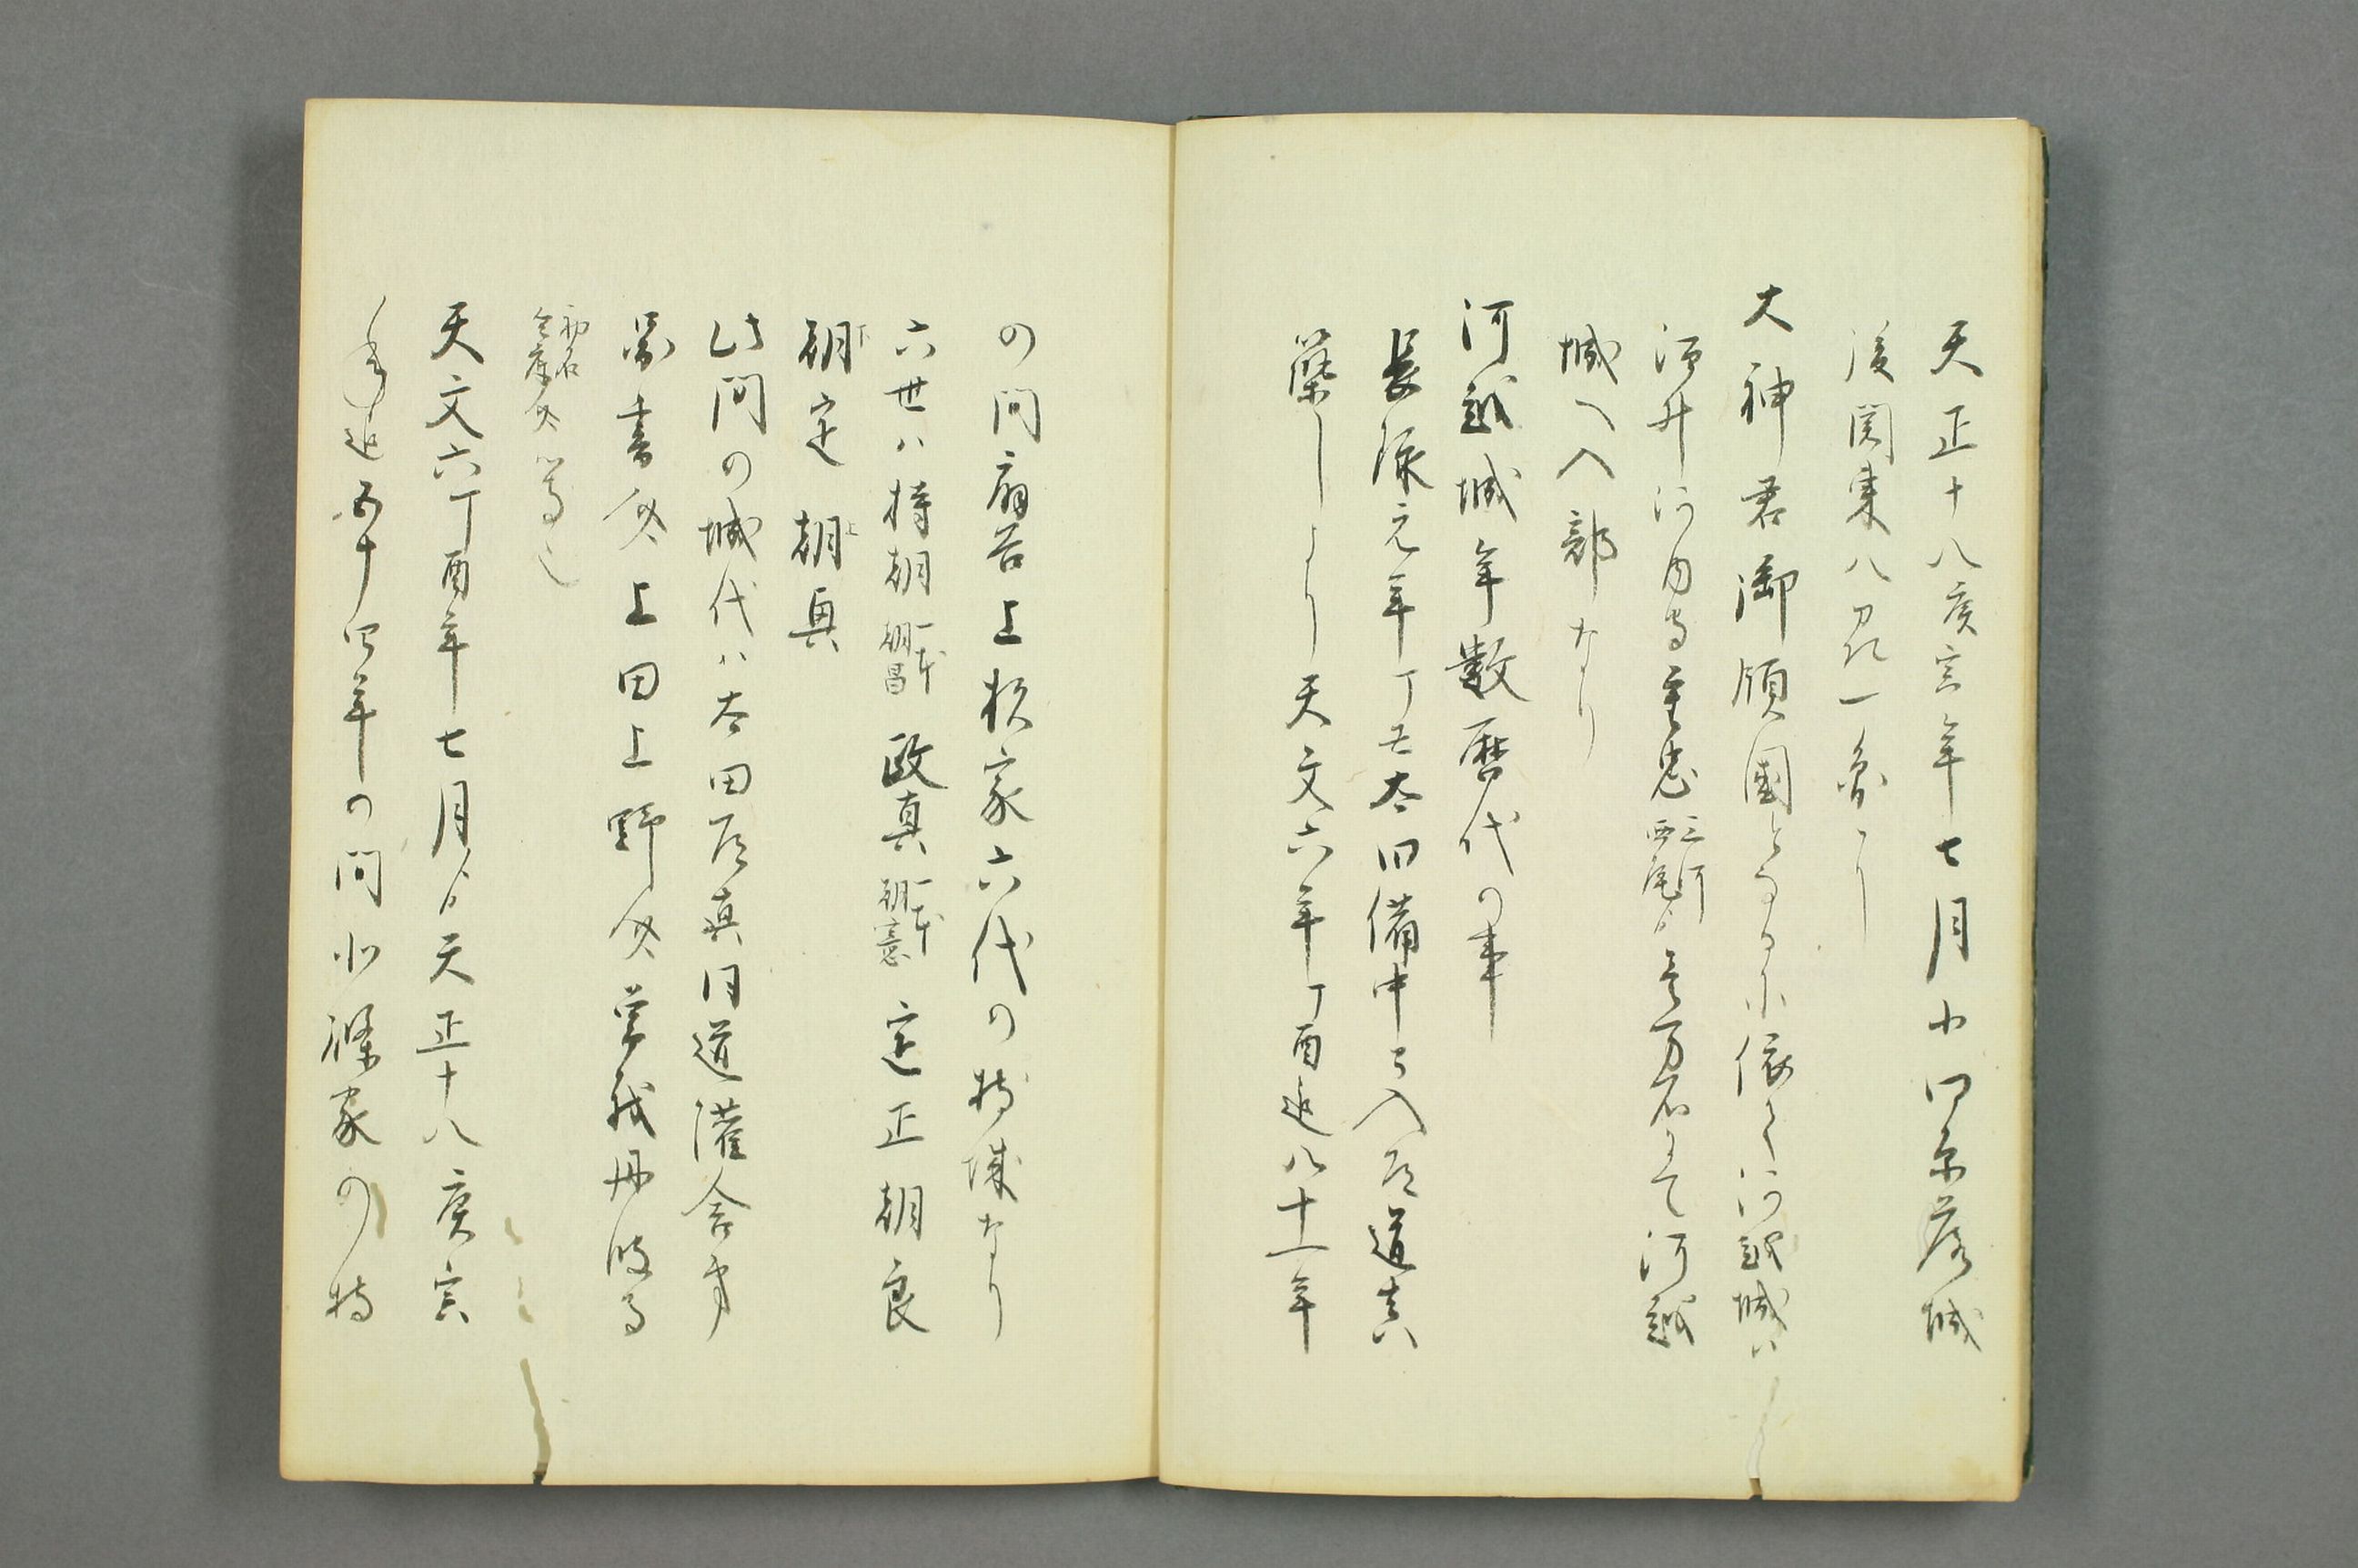 天正十八庚寅年七月小田原落城
後関東八州一統より
大神君御領国となるに依て河越城は
酒井河内守重忠三河西尾より壱万石にて河越
城へ入部なり
河越城年数歴代の事
長禄元年丁丑太田備中守入道道真
築しより天文六年丁酉迄八十一年
の間扇谷上杉家六代の持城なり
六世ハ持朝一本朝昌 政真一本朝憲 定正 朝良
朝定下 朝興上
此間の城代ハ太田道真同道灌舎弟
図書允上田上野介曽我丹波守
初名全慶介等也
天文六丁酉年七月より天正十八庚寅
年迄五十四年の間北條家の持